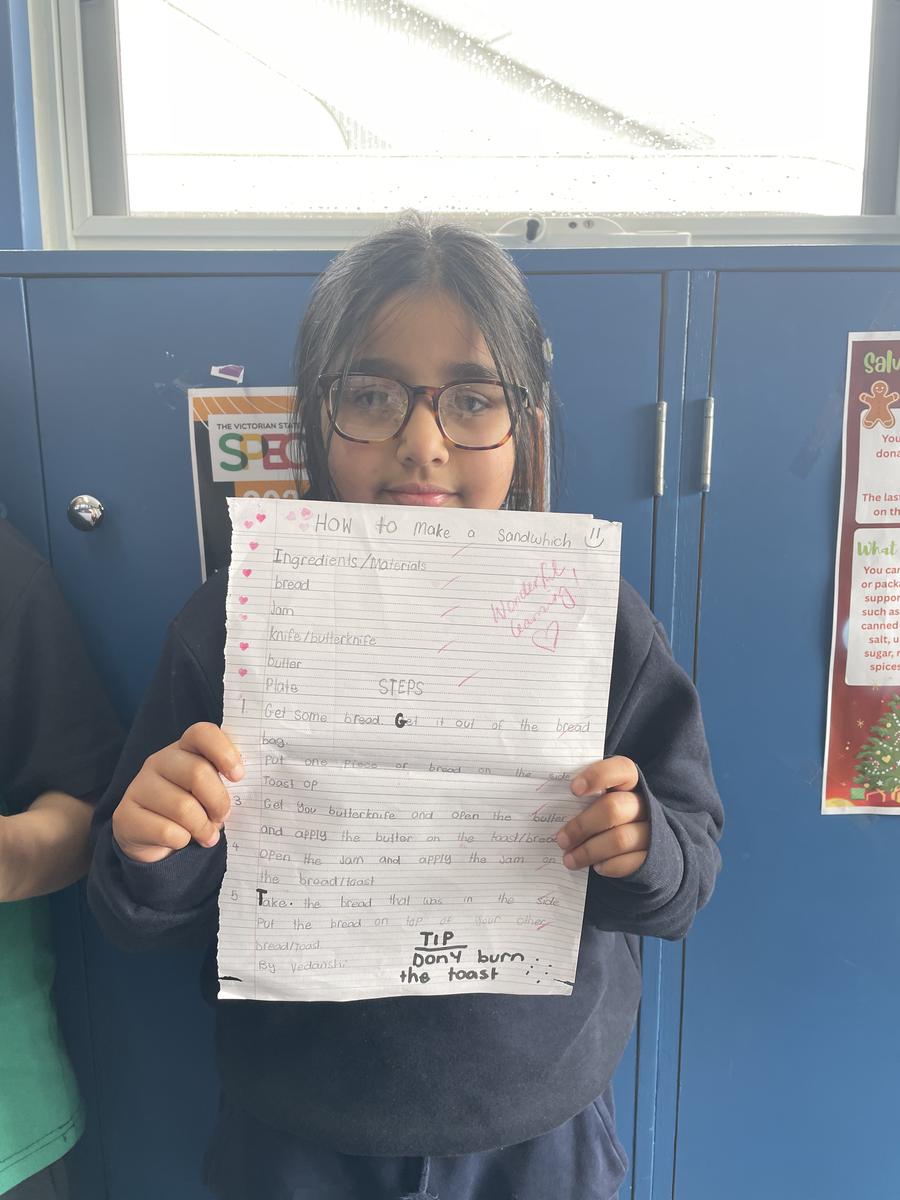 HOW to make a Sandwhich
Ingredients/Materials
bread
Jam
knife/butterknife
butter
Plate
Wonderful
learning!
STEPS
1 Get some bread. Get it out of the bread
bag.
Put one Piece of bread on the side
Toast op
3 Get You butterknife and open the butter
and apply the butter on the toast/bread
4 Open the Jam and apply the Jam on
the bread/toast
5 Take. the bread that was in the side
Put the bread on top of your other
bread/toast
By Vedanshi
TIP
DonY burn
the toast
THE VICTORIAN STATE
SPEC
Salv
You
dona
The las
on th
What
You can
or packa
suppor
such as
canned
salt, u
sugar, r
spices